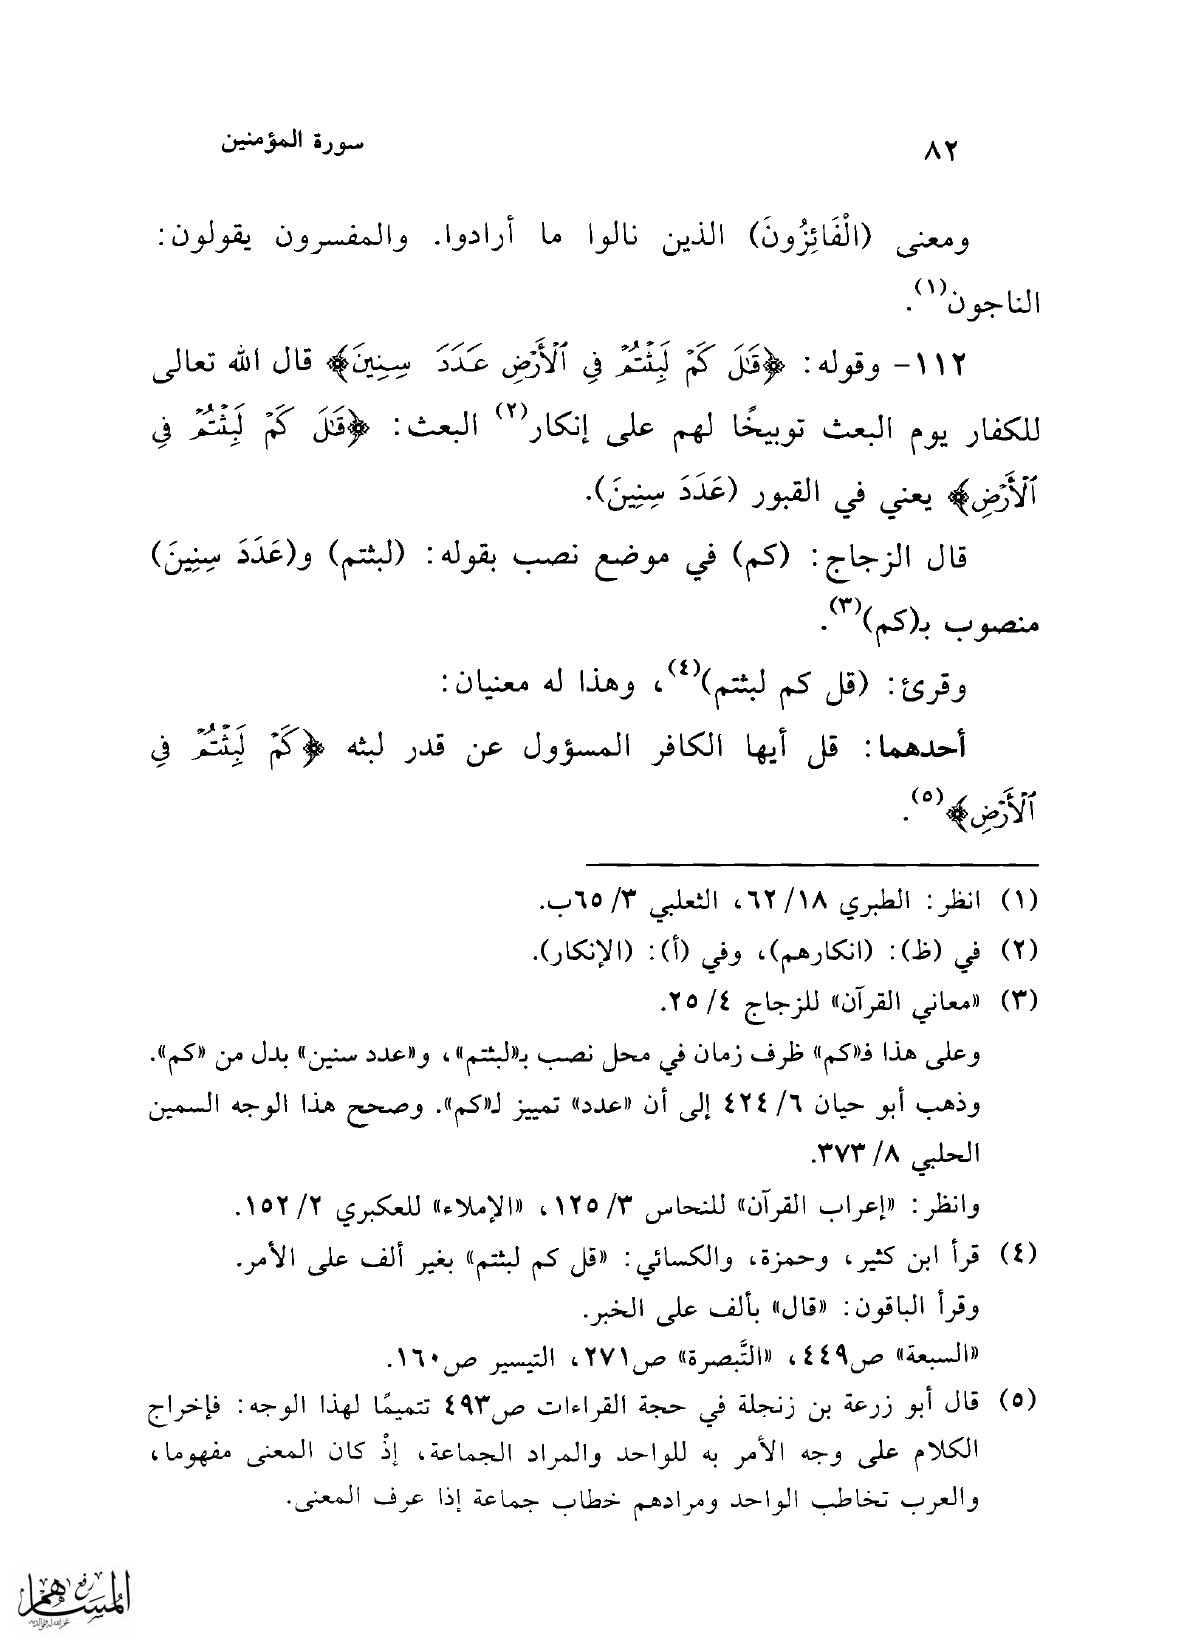 ٨٢
سورة المؤمنين
ومعنى (الْفَائِزُونَ) الذين نالوا ما أرادوا. والمفسرون يقولون:
الناجون(١).
١١٢- وقوله: ﴿قَٰلَ كَمْ لَبِثْتُمْ فِي ٱلْأَرْضِ عَدَدَ سِنِينَ﴾ قال الله تعالى
للكفار يوم البعث توبيخًا لهم على إنكار(٢) البعث: ﴿قَٰلَ كَمْ لَبِثْتُمْ فِي
ٱلْأَرْضِ﴾ يعني في القبور (عَدَدَ سِنِينَ).
قال الزجاج: (كم) في موضع نصب بقوله: (لبثتم) و(عَدَدَ سِنِينَ)
منصوب بـ(كم)(٣).
وقرئ: (قل كم لبثتم)(٤)، وهذا له معنيان:
أحدهما: قل أيها الكافر المسؤول عن قدر لبثه ﴿كَمْ لَبِثْتُمْ فِي
ٱلْأَرْضِ﴾(٥).
(١) انظر: الطبري ١٨/ ٦٢، الثعلبي ٣/ ٦٥ب.
(٢) في (ظ): (انكارهم)، وفي (أ): (الإنكار).
(٣) «معاني القرآن» للزجاج ٤/ ٢٥.
وعلى هذا فـ«كم» ظرف زمان في محل نصب بـ«لبثتم»، و«عدد سنين» بدل من «كم».
وذهب أبو حيان ٦/ ٤٢٤ إلى أن «عدد» تمييز لـ«كم». وصحح هذا الوجه السمين
الحلبي ٨/ ٣٧٣.
وانظر: «إعراب القرآن» للنحاس ٣/ ١٢٥، «الإملاء» للعكبري ٢/ ١٥٢.
(٤) قرأ ابن كثير، وحمزة، والكسائي: «قل كم لبثتم» بغير ألف على الأمر.
وقرأ الباقون: «قال» بألف على الخبر.
«السبعة» ص٤٤٩، «التَّبصرة» ص٢٧١، التيسير ص١٦٠.
(٥) قال أبو زرعة بن زنجلة في حجة القراءات ص٤٩٣ تتميمًا لهذا الوجه: فإخراج
الكلام على وجه الأمر به للواحد والمراد الجماعة، إذْ كان المعنى مفهوما،
والعرب تخاطب الواحد ومرادهم خطاب جماعة إذا عرف المعنى.
رفع
المساهم